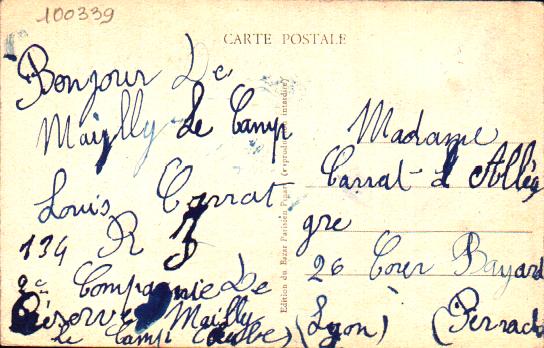 100339
CARTE POSTALE
Bonjour De
Mailly le Camp
Louis Carrat
134 R I
2e Compagnie De
Réserve Mailly
le Camp (Aube)
Edition du Bazar Parisien (reproduction interdite)
Madame
Carrat d'Allè
gre
26 Cour Bayard
(Lyon) (Perrache